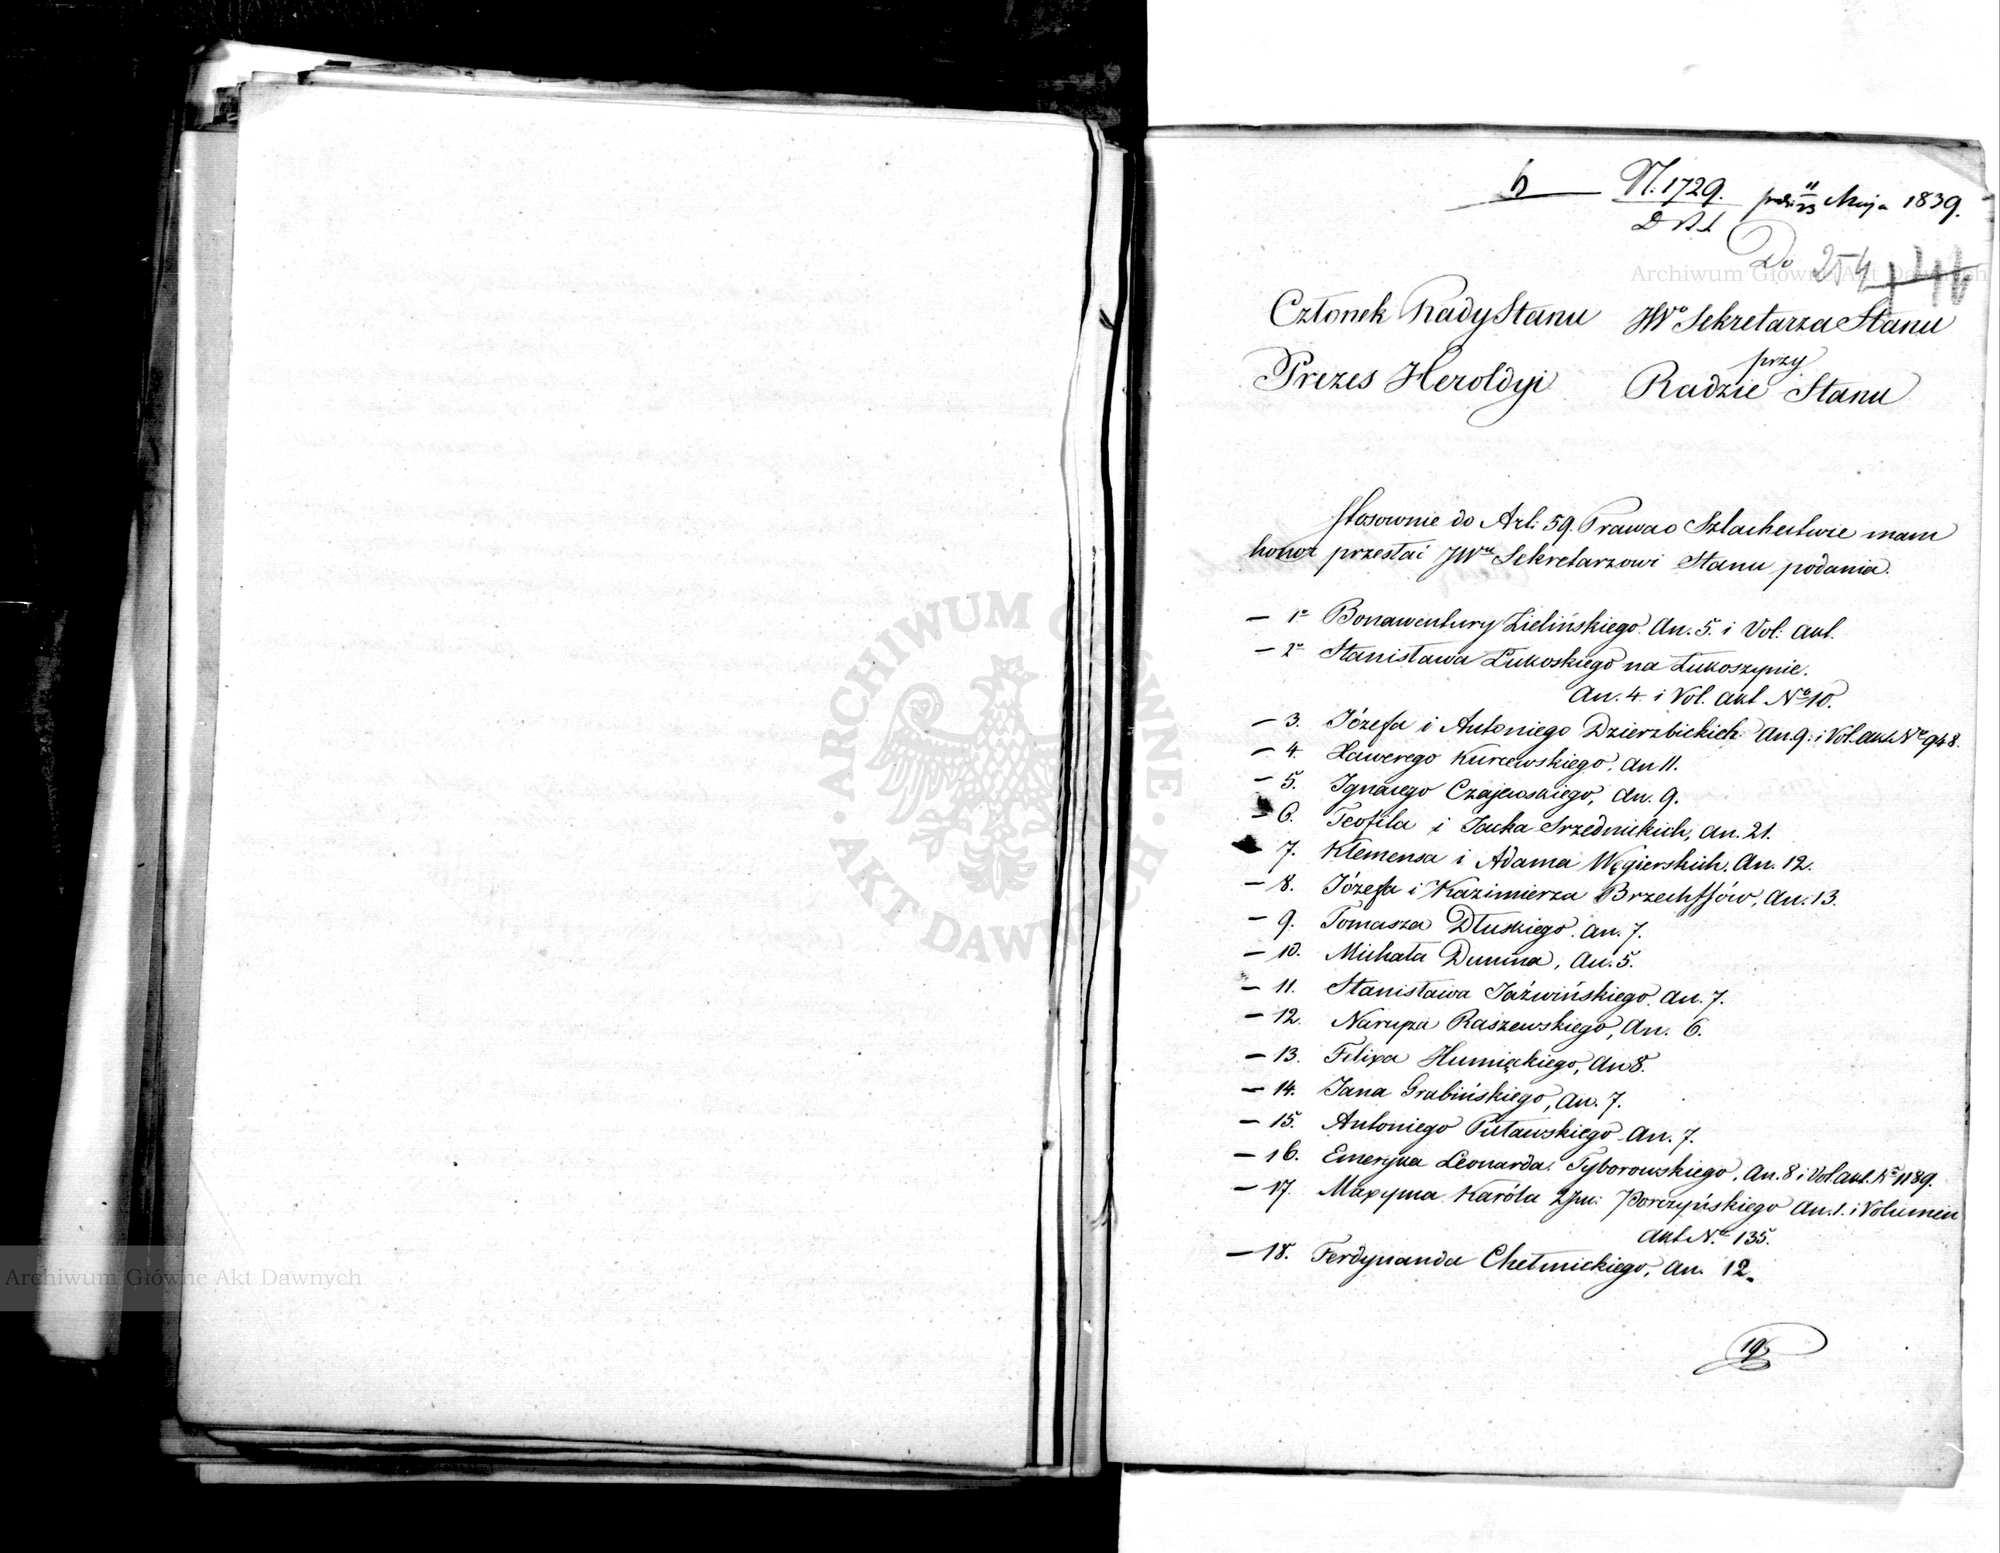 N. 1729. 11/23 Maja 1839.
Do 254
Członek Rady Stanu
Prezes Heroldyi
JWo Sekretarza Stanu
przy
Radzie Stanu
Stosownie do Art: 59. Prawa o Szlachectwie mam
honor przesłać JWu Sekretarzowi Stanu podania.
— 1o Bonawentury Zielińskiego. An. 5. i Vol: akt.
— 2o Stanisława Łukoskiego na Łukoszynie.
An. 4 i Vol. akt No 10.
— 3. Józefa i Antoniego Dzierzbickich An. 9. i Vol. akt No 948.
— 4. Xawerego Kurcewskiego, An 11.
— 5. Ignacego Czajewskiego, An. 9.
— 6. Teofila i Jacka Srzednickich, An. 21.
— 7. Klemensa i Adama Węgierskich, An. 12.
— 8. Józefa i Kazimierza Brzechffów, An. 13.
— 9. Tomasza Dłuskiego. An. 7.
— 10. Michała Dunina, An. 5.
— 11. Stanisława Jaźwińskiego. An. 7.
— 12. Narcyza Raszewskiego, An. 6.
— 13. Filipa Humięckiego, An 8.
— 14. Jana Grabińskiego, An. 7.
— 15. Antoniego Putawskiego An. 7.
— 16. Emeryka Leonarda Tyborowskiego, An. 8 i Vol. akt. No 1189.
— 17. Maxyma Karóla 2jm: Porczyńskiego An. 1. i Volumen
akt No 135.
— 18. Ferdynanda Chełmickiego, An. 12.
19
ARCHIWUM GŁÓWNE AKT DAWNYCH
Archiwum Główne Akt Dawnych
Archiwum Główne Akt Dawnych